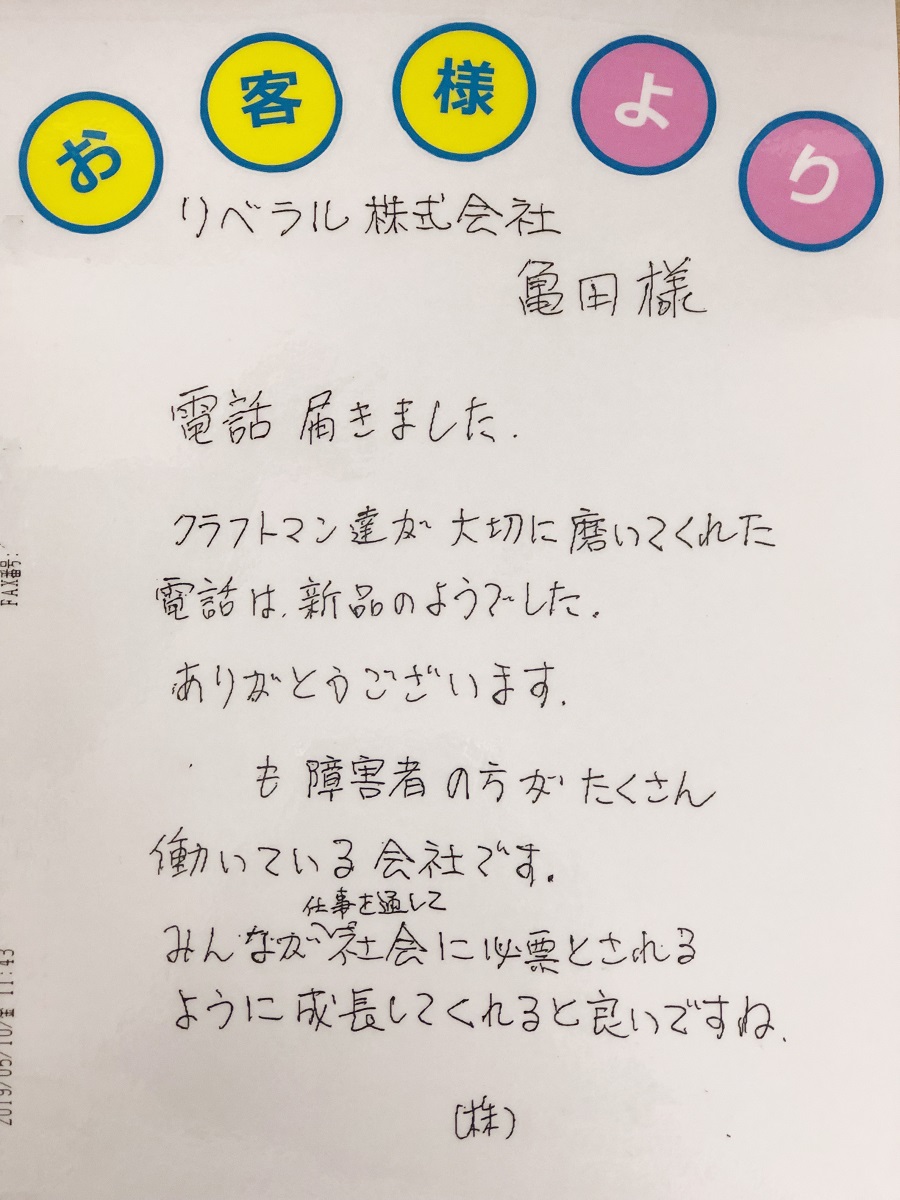 お客様より
リベラル株式会社
亀田様
電話 届きました.
クラフトマン達が 大切に磨いてくれた
電話は、新品のようでした.
ありがとうございます.
も 障害者の方が たくさん
働いている会社です.
仕事を通して
みんなが社会に必票とされる
ように成長してくれると良いですね.
(株)
FAX番号:
2019/05/10/金 11:43